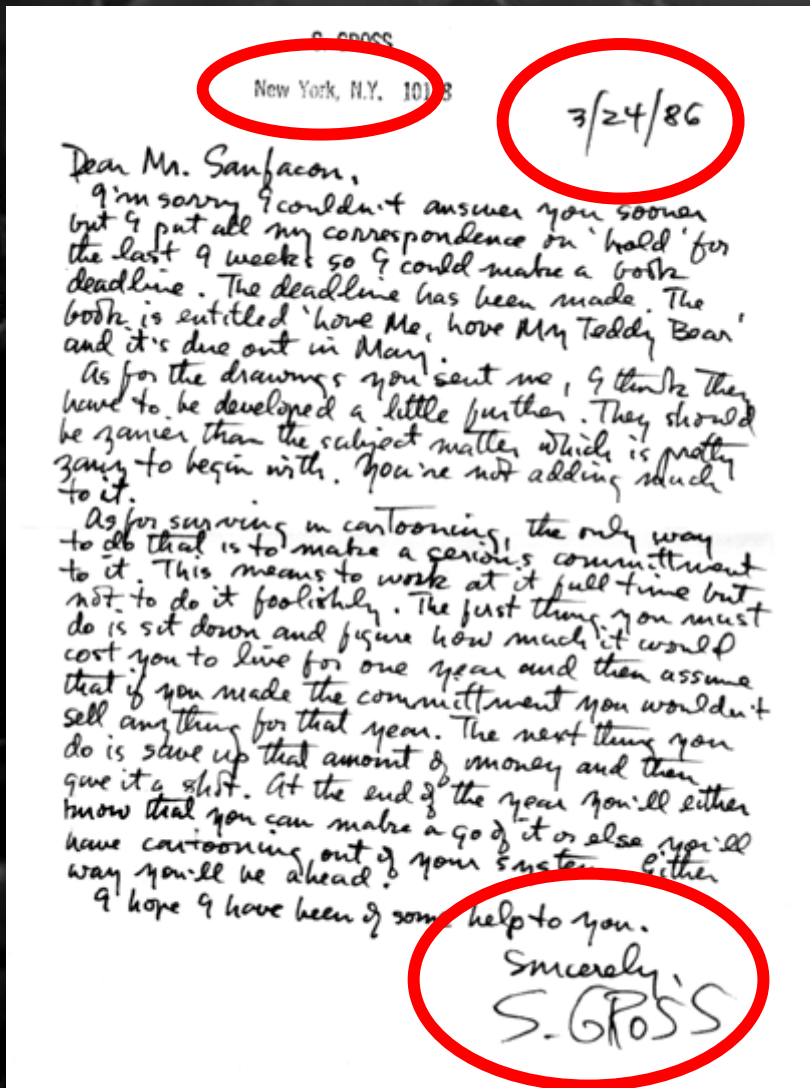 S. GROSS
New York, N.Y. 10128
3/24/86
Dear Mr. Sanfacon,
I'm sorry I couldn't answer you sooner
but I put all my correspondence on 'hold' for
the last 9 weeks so I could make a book
deadline. The deadline has been made. The
book is entitled 'Love Me, Love My Teddy Bear'
and it's due out in May.
As for the drawings you sent me, I think they
have to be developed a little further. They should
be zanier than the subject matter which is pretty
zany to begin with. You're not adding much
to it.
As for surviving in cartooning, the only way
to do that is to make a serious committment
to it. This means to work at it full time but
not to do it foolishly. The first thing you must
do is sit down and figure how much it would
cost you to live for one year and then assume
that if you made the committment you wouldn't
sell anything for that year. The next thing you
do is save up that amount of money and then
give it a shot. At the end of the year you'll either
know that you can make a go of it or else you'll
have cartooning out of your system. Either
way you'll be ahead.
I hope I have been of some help to you.
Sincerely,
S. GROSS